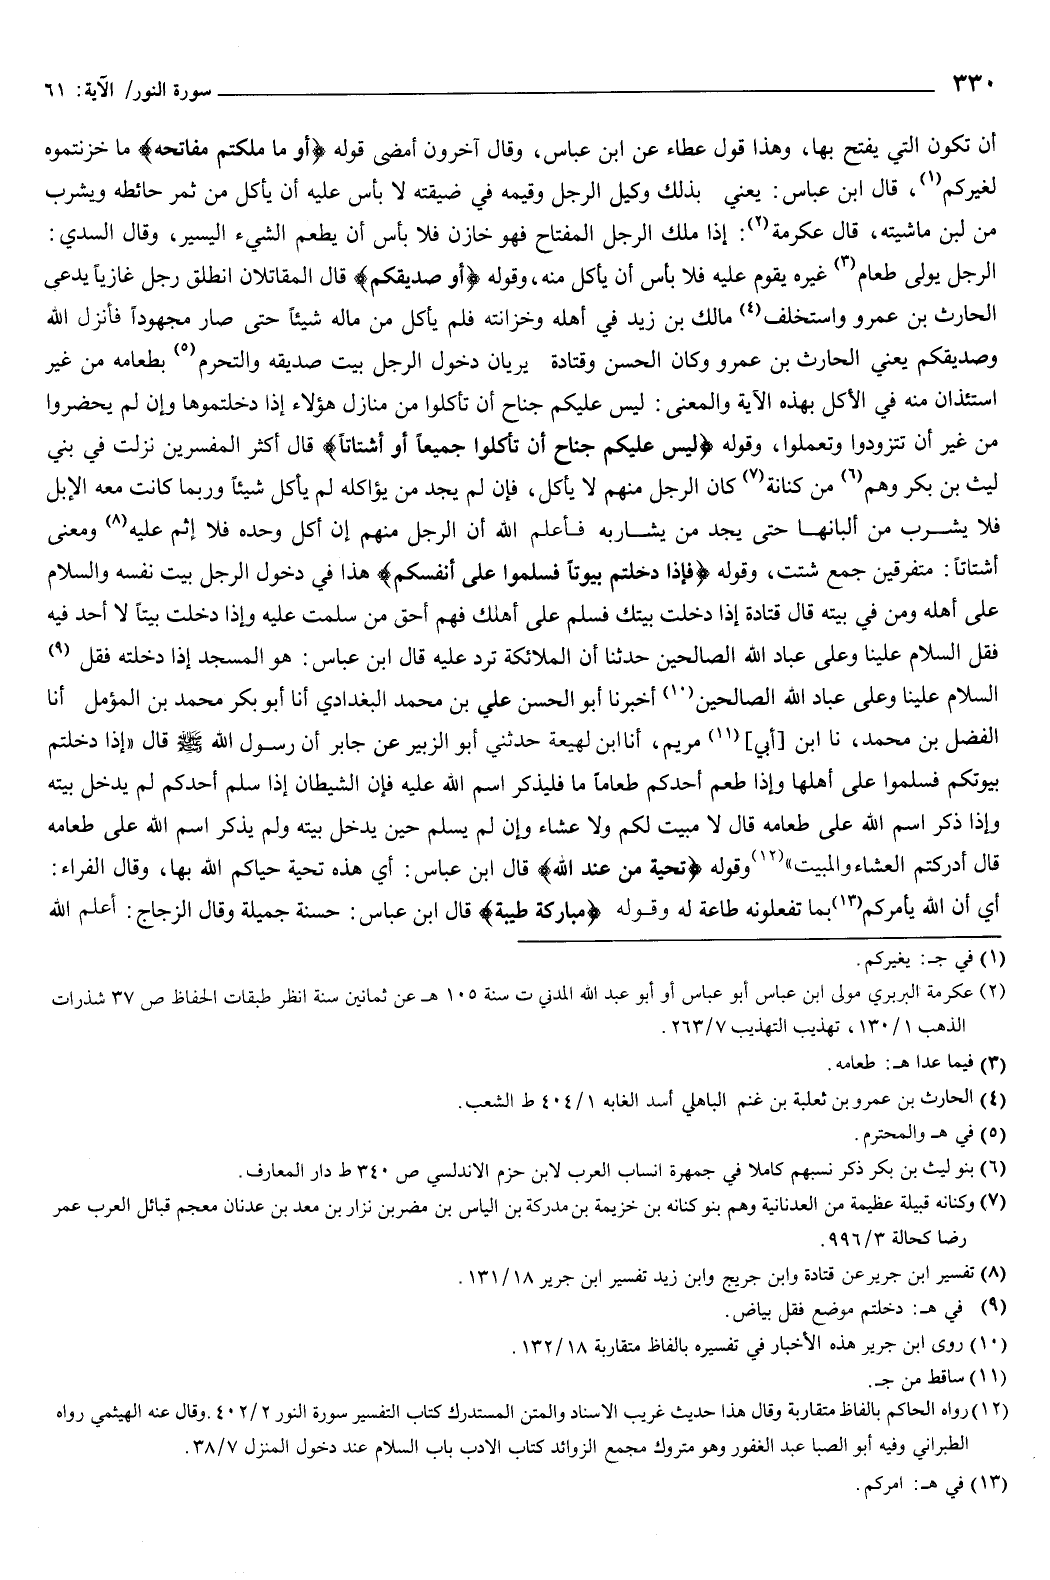 ٣٣٠ سورة النور/ الآية: ٦١
أن تكون التي يفتح بها، وهذا قول عطاء عن ابن عباس، وقال آخرون أمضى قوله ﴿أو ما ملكتم مفاتحه﴾ ما خزنتموه
لغيركم(١)، قال ابن عباس: يعني بذلك وكيل الرجل وقيمه في ضيقته لا بأس عليه أن يأكل من ثمر حائطه ويشرب
من لبن ماشيته، قال عكرمة(٢): إذا ملك الرجل المفتاح فهو خازن فلا بأس أن يطعم الشيء اليسير، وقال السدي:
الرجل يولى طعام(٣) غيره يقوم عليه فلا بأس أن يأكل منه، وقوله ﴿أو صديقكم﴾ قال المقاتلان انطلق رجل غازياً يدعى
الحارث بن عمرو واستخلف(٤) مالك بن زيد في أهله وخزانته فلم يأكل من ماله شيئاً حتى صار مجهوداً فأنزل الله
وصديقكم يعني الحارث بن عمرو وكان الحسن وقتادة يريان دخول الرجل بيت صديقه والتحرم(٥) بطعامه من غير
استئذان منه في الأكل بهذه الآية والمعنى: ليس عليكم جناح أن تأكلوا من منازل هؤلاء إذا دخلتموها وإن لم يحضروا
من غير أن تتزودوا وتعملوا، وقوله ﴿ليس عليكم جناح أن تأكلوا جميعاً أو أشتاتاً﴾ قال أكثر المفسرين نزلت في بني
ليث بن بكر وهم(٦) من كنانة(٧) كان الرجل منهم لا يأكل، فإن لم يجد من يؤاكله لم يأكل شيئاً وربما كانت معه الإبل
فلا يشرب من ألبانها حتى يجد من يشاربه فأعلم الله أن الرجل منهم إن أكل وحده فلا إثم عليه(٨) ومعنى
أشتاتاً: متفرقين جمع شتت، وقوله ﴿فإذا دخلتم بيوتاً فسلموا على أنفسكم﴾ هذا في دخول الرجل بيت نفسه والسلام
على أهله ومن في بيته قال قتادة إذا دخلت بيتك فسلم على أهلك فهم أحق من سلمت عليه وإذا دخلت بيتاً لا أحد فيه
فقل السلام علينا وعلى عباد الله الصالحين حدثنا أن الملائكة ترد عليه قال ابن عباس: هو المسجد إذا دخلته فقل (٩)
السلام علينا وعلى عباد الله الصالحين(١٠) أخبرنا أبو الحسن علي بن محمد البغدادي أنا أبو بكر محمد بن المؤمل أنا
الفضل بن محمد، نا ابن [أبي](١١) مريم، أنا ابن لهيعة حدثني أبو الزبير عن جابر أن رسول الله ﷺ قال «إذا دخلتم
بيوتكم فسلموا على أهلها وإذا طعم أحدكم طعاماً ما فليذكر اسم الله عليه فإن الشيطان إذا سلم أحدكم لم يدخل بيته
وإذا ذكر اسم الله على طعامه قال لا مبيت لكم ولا عشاء وإن لم يسلم حين يدخل بيته ولم يذكر اسم الله على طعامه
قال أدركتم العشاء والمبيت»(١٢) وقوله ﴿تحية من عند الله﴾ قال ابن عباس: أي هذه تحية حياكم الله بها، وقال الفراء:
أي أن الله يأمركم(١٣) بما تفعلونه طاعة له وقوله ﴿مباركة طيبة﴾ قال ابن عباس: حسنة جميلة وقال الزجاج: أعلم الله
(١) في جـ: يغيركم.
(٢) عكرمة البربري مولى ابن عباس أبو عباس أو أبو عبد الله المدني ت سنة ١٠٥ هـ عن ثمانين سنة انظر طبقات الحفاظ ص ٣٧ شذرات
الذهب ١٣٠/١، تهذيب التهذيب ٢٦٣/٧.
(٣) فيما عدا هـ: طعامه.
(٤) الحارث بن عمرو بن ثعلبة بن غنم الباهلي أسد الغابه ٤٠٤/١ ط الشعب.
(٥) في هـ والمحترم.
(٦) بنو ليث بن بكر ذكر نسبهم كاملا في جمهرة انساب العرب لابن حزم الاندلسي ص ٣٤٠ ط دار المعارف.
(٧) وكنانه قبيلة عظيمة من العدنانية وهم بنو كنانه بن خزيمة بن مدركة بن الياس بن مضر بن نزار بن معد بن عدنان معجم قبائل العرب عمر
رضا كحالة ٩٩٦/٣.
(٨) تفسير ابن جرير عن قتادة وابن جريج وابن زيد تفسير ابن جرير ١٣١/١٨.
(٩) في هـ: دخلتم موضع فقل بياض.
(١٠) روى ابن جرير هذه الأخبار في تفسيره بالفاظ متقاربة ١٣٢/١٨.
(١١) ساقط من جـ.
(١٢) رواه الحاكم بالفاظ متقاربة وقال هذا حديث غريب الاسناد والمتن المستدرك كتاب التفسير سورة النور ٤٠٢/٢. وقال عنه الهيثمي رواه
الطبراني وفيه أبو الصبا عبد الغفور وهو متروك مجمع الزوائد كتاب الادب باب السلام عند دخول المنزل ٣٨/٧.
(١٣) في هـ: امركم.